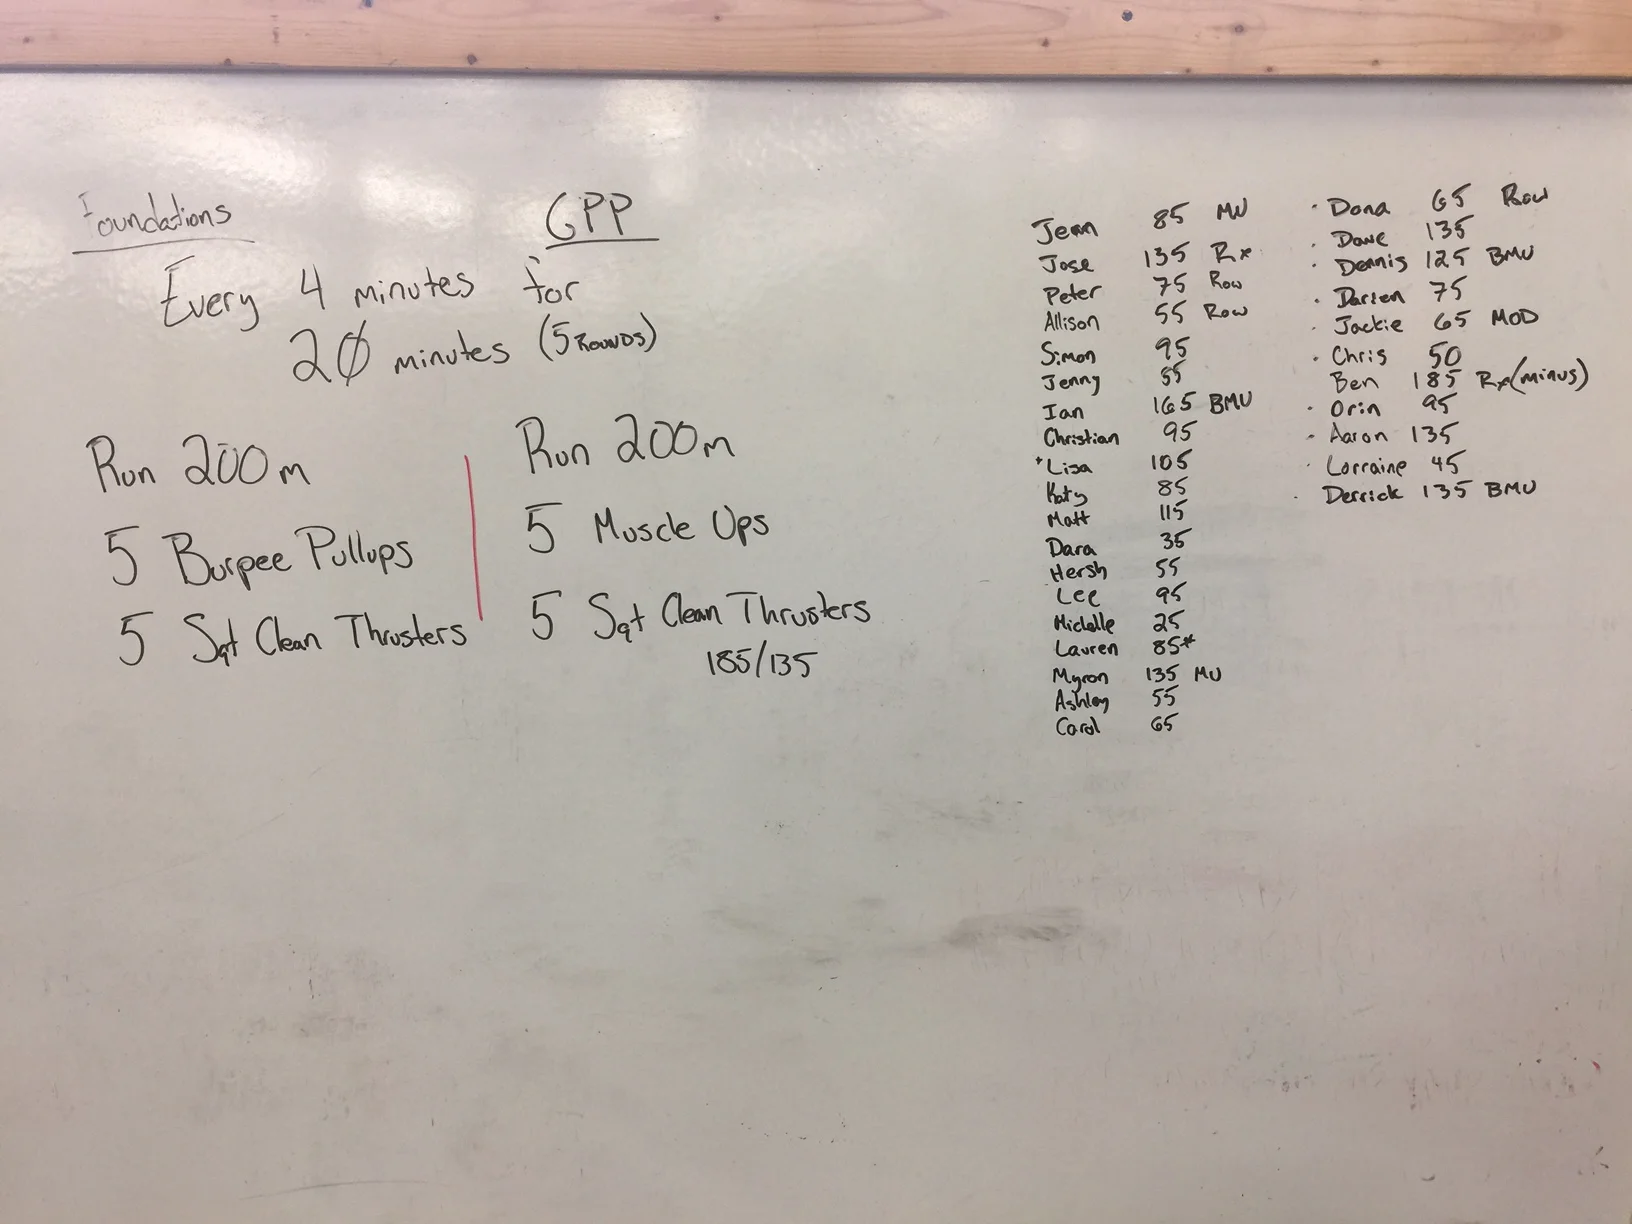 Foundations
GPP
Every 4 minutes for
20 minutes (5 ROUNDS)
Run 200m
5 Burpee Pullups
5 Sqt Clean Thrusters
Run 200m
5 Muscle Ups
5 Sqt Clean Thrusters
185/135
Jenn 85 MU
Jose 135 Rx
Peter 75 Row
Allison 55 Row
Simon 95
Jenny 55
Ian 165 BMU
Christian 95
*Lisa 105
Katy 85
Matt 115
Dara 35
Hersh 55
Lee 95
Michelle 25
Lauren 85*
Myron 135 MU
Ashley 55
Carol 65
· Dana 65 Row
· Dave 135
· Dennis 125 BMU
· Darien 75
· Jackie 65 MOD
· Chris 50
Ben 185 Rx(minus)
· Orin 95
· Aaron 135
· Lorraine 45
· Derrick 135 BMU